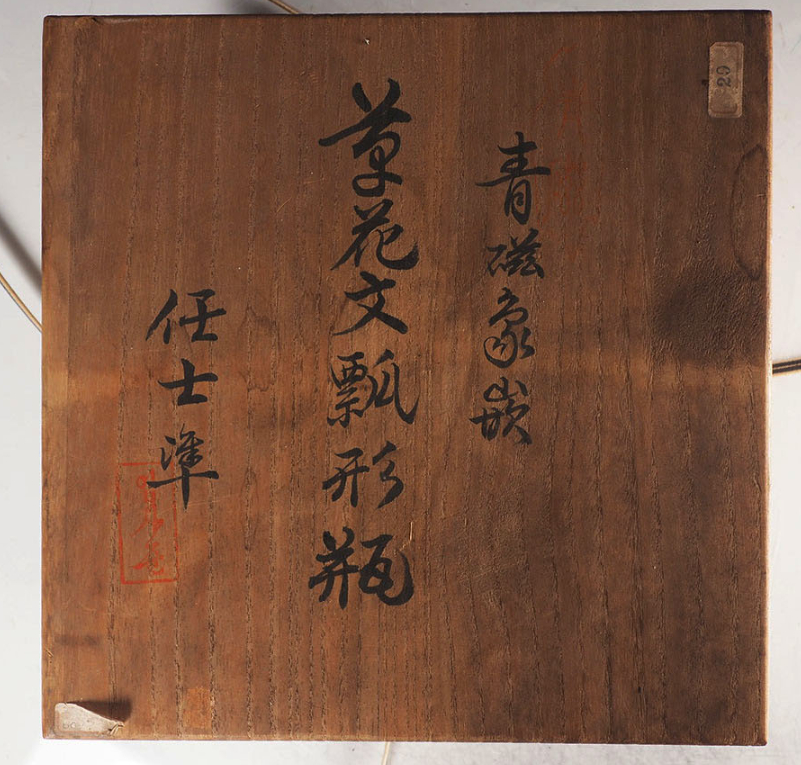 青磁象嵌
草花文瓢形瓶
任士準
29